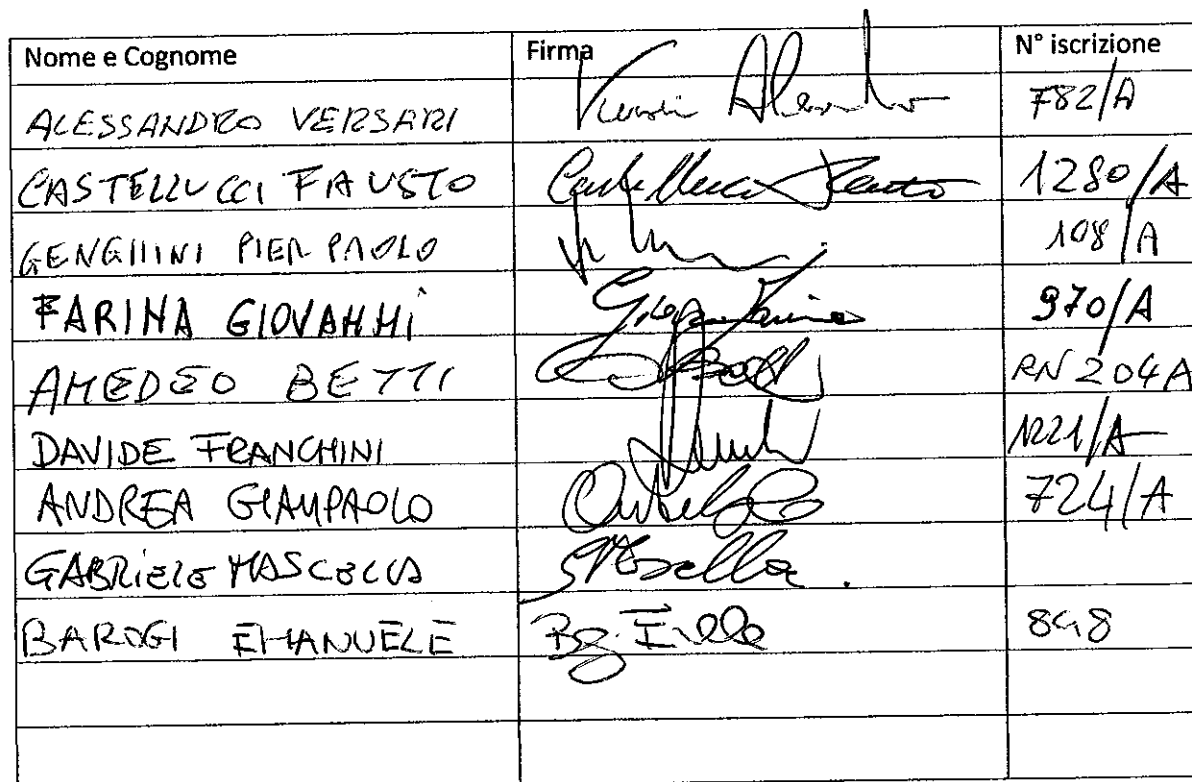 Nome e Cognome Firma N° iscrizione
ALESSANDRO VERSARI 782/A
CASTELLUCCI FAUSTO Castellucci Fausto 1280/A
GENGHINI PIER PAOLO 108/A
FARINA GIOVANNI 970/A
AMEDEO BETTI RN 204A
DAVIDE FRANCHINI 1221/A
ANDREA GIAMPAOLO 724/A
GABRIELE MASCELLA
BAROGI EMANUELE 848